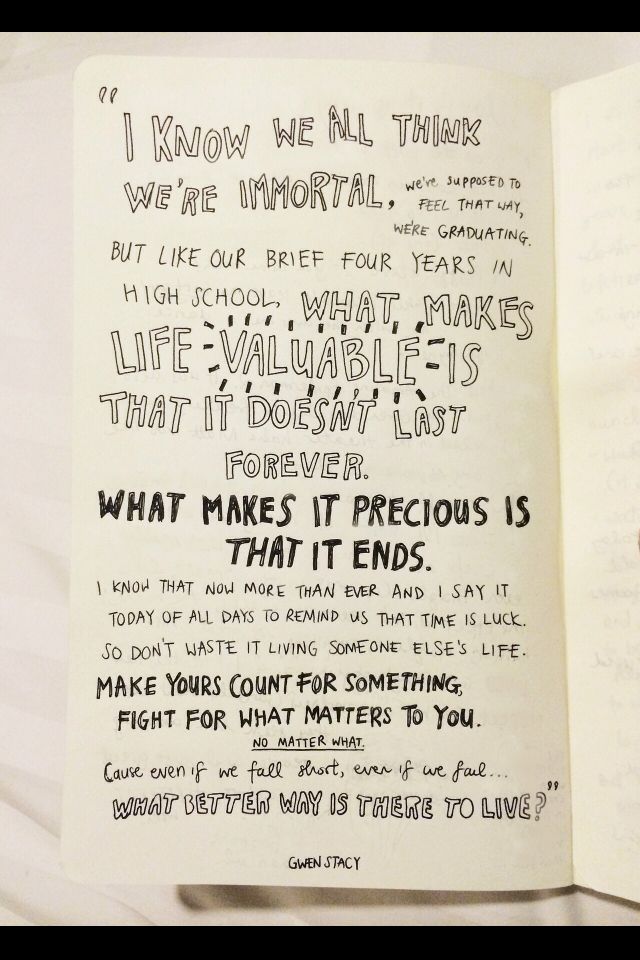 "I KNOW WE ALL THINK
WE'RE IMMORTAL, we're supposed to
FEEL THAT WAY,
WE'RE GRADUATING.
BUT LIKE OUR BRIEF FOUR YEARS IN
HIGH SCHOOL, WHAT MAKES
LIFE VALUABLE IS
THAT IT DOESN'T LAST
FOREVER.
WHAT MAKES IT PRECIOUS IS
THAT IT ENDS.
I KNOW THAT NOW MORE THAN EVER AND I SAY IT
TODAY OF ALL DAYS TO REMIND US THAT TIME IS LUCK.
SO DON'T WASTE IT LIVING SOMEONE ELSE'S LIFE.
MAKE YOURS COUNT FOR SOMETHING,
FIGHT FOR WHAT MATTERS TO YOU.
NO MATTER WHAT.
Cause even if we fall short, even if we fail...
WHAT BETTER WAY IS THERE TO LIVE?"
GWEN STACY